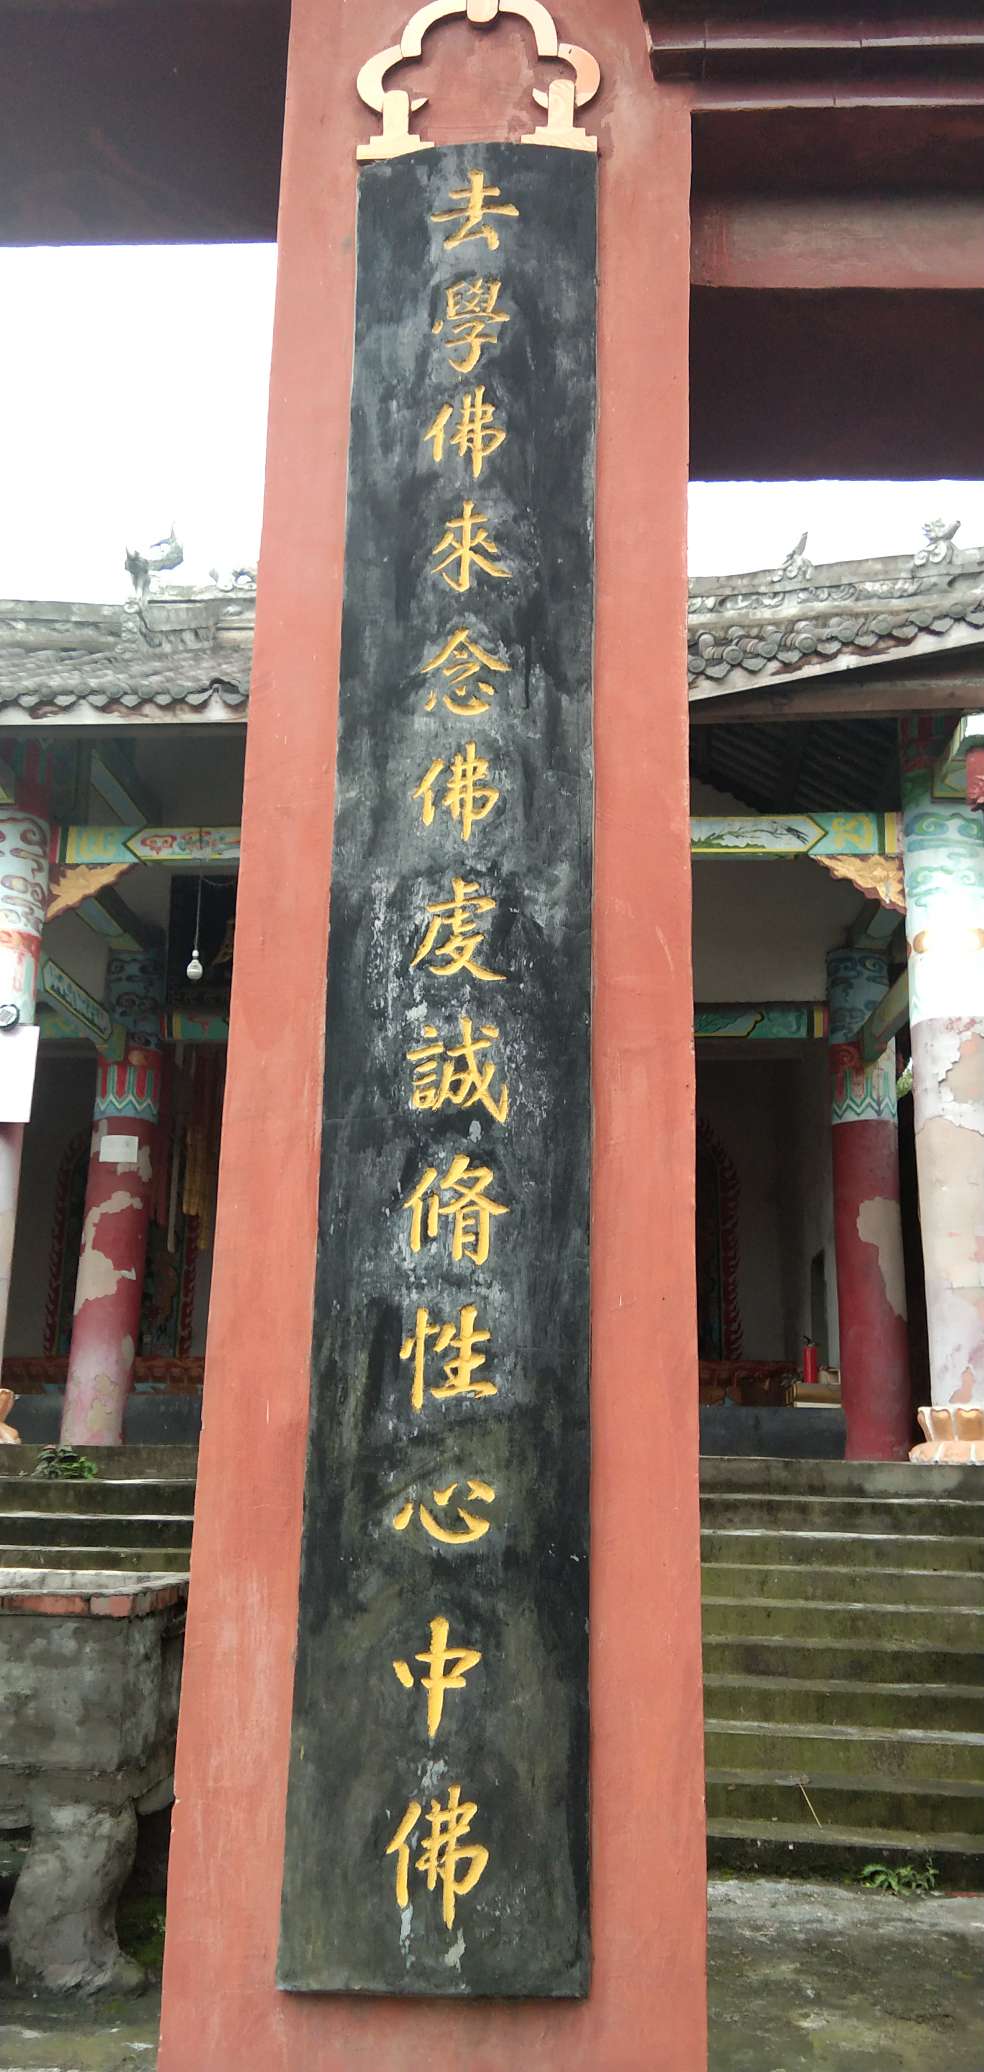 去學佛來念佛虔誠脩性心中佛